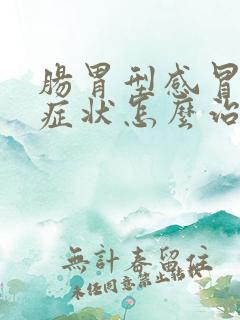 腸胃型感冒
症状怎麼治
無計春留住
未任同意禁止轉載